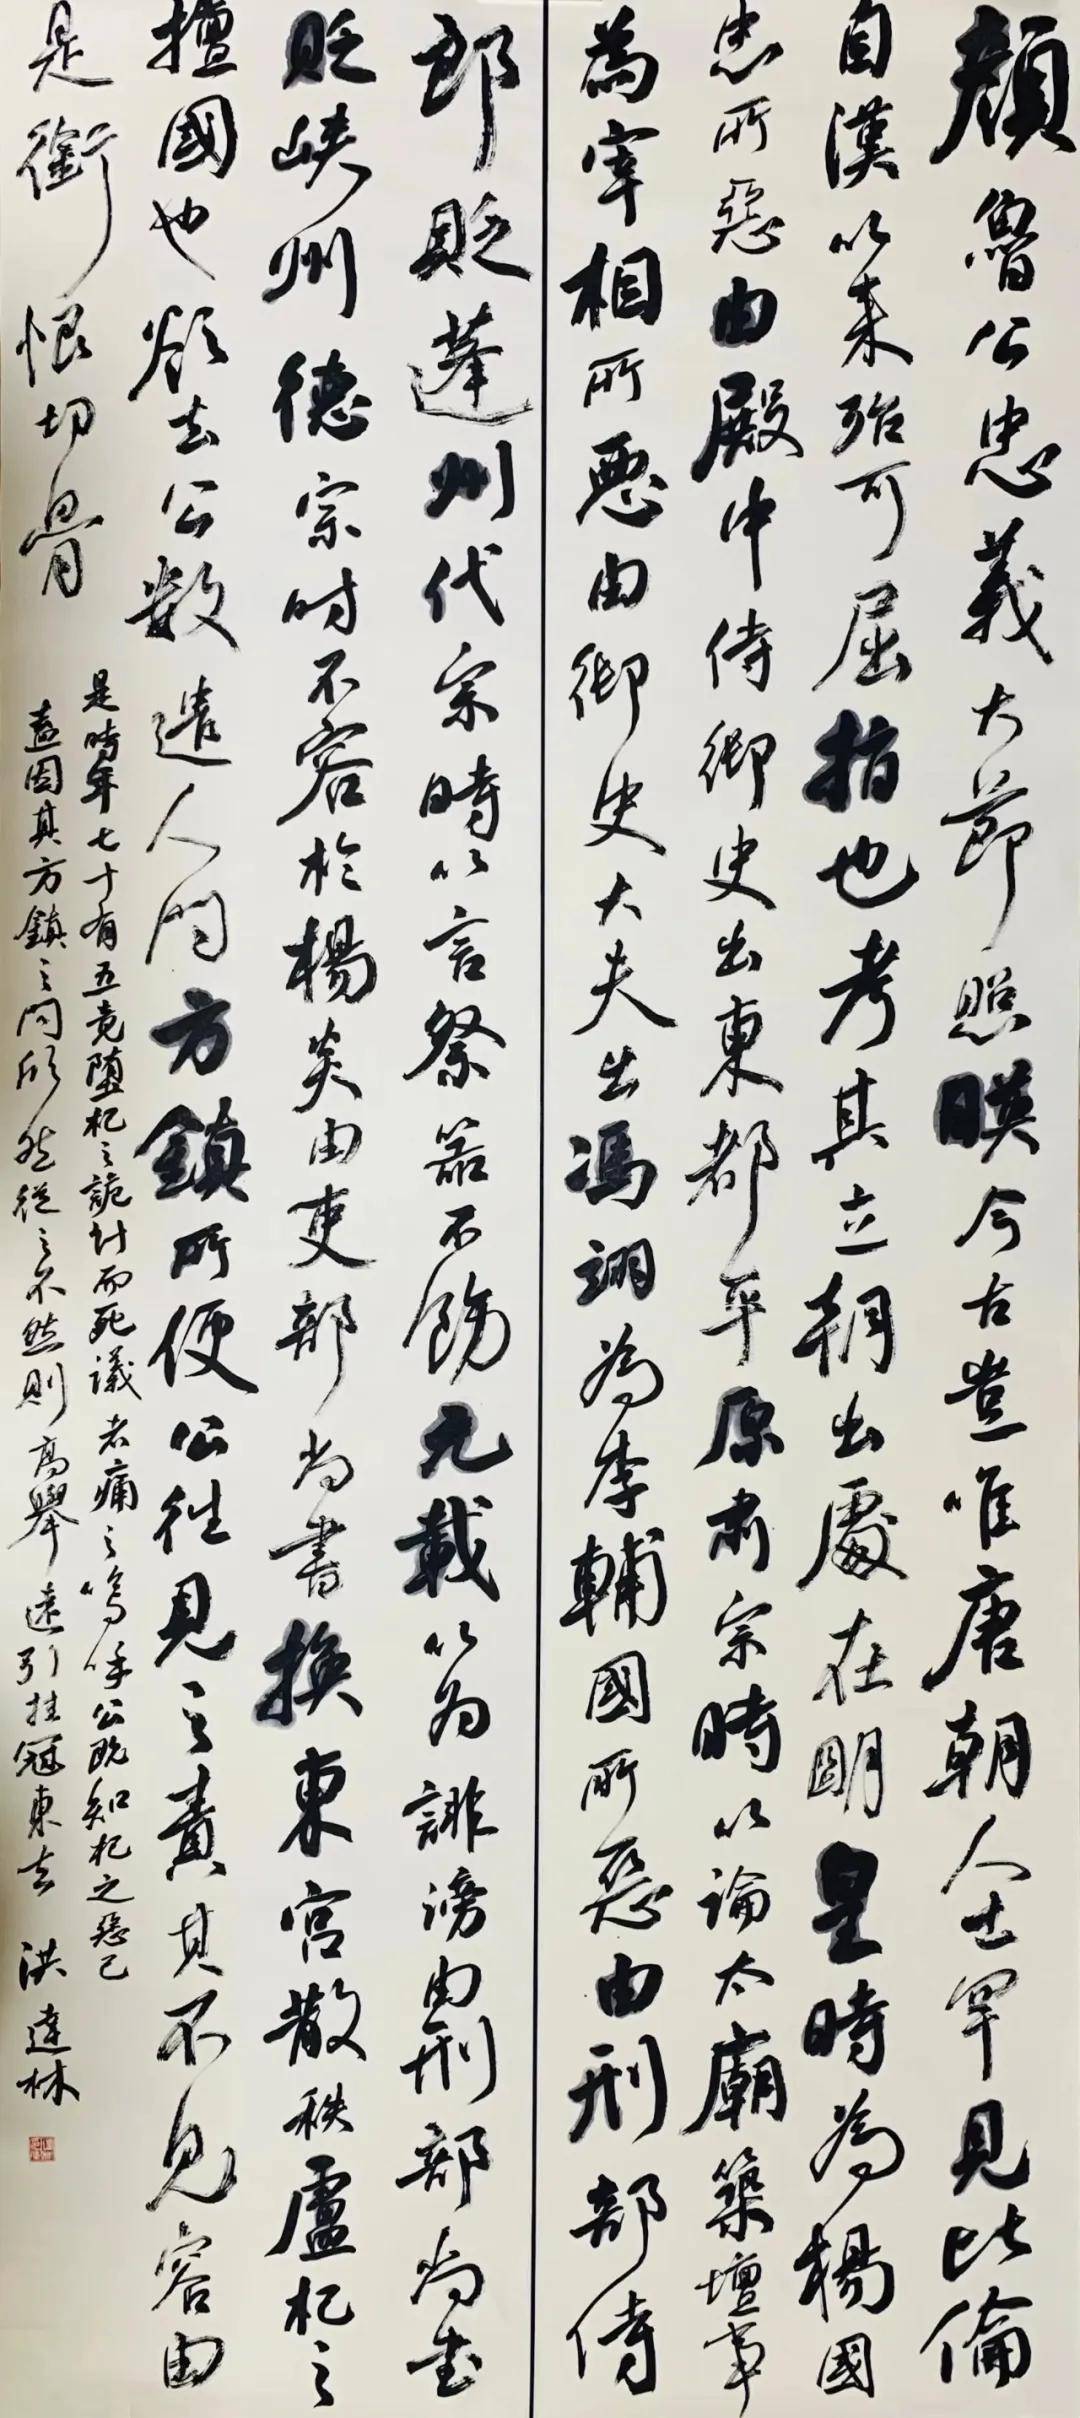 顏魯公忠義大節照映今古豈唯唐朝人士罕見比倫
自漢以来殆可屈指也考其立朝出處在明皇時為楊國
忠所惡由殿中侍御史出東都平原肅宗時以論太廟築壇事
為宰相所惡由御史大夫出馮翊為李輔國所惡由刑部侍
郎貶蓬州代宗時以言祭器不飭元載以为誹謗由刑部尚书
貶峽州德宗时不容於楊炎由吏部尚書換東宮散秩盧杞之
擅國也欲去公数遣人問方鎮所便公往見之責其不見容由
是銜恨切骨
是時年七十有五竟墮杞之詭計而死議者痛之嗚呼公既知杞之惡己
盍因其方鎮之问欣然從之不然則高舉遠引挂冠東去 洪達林